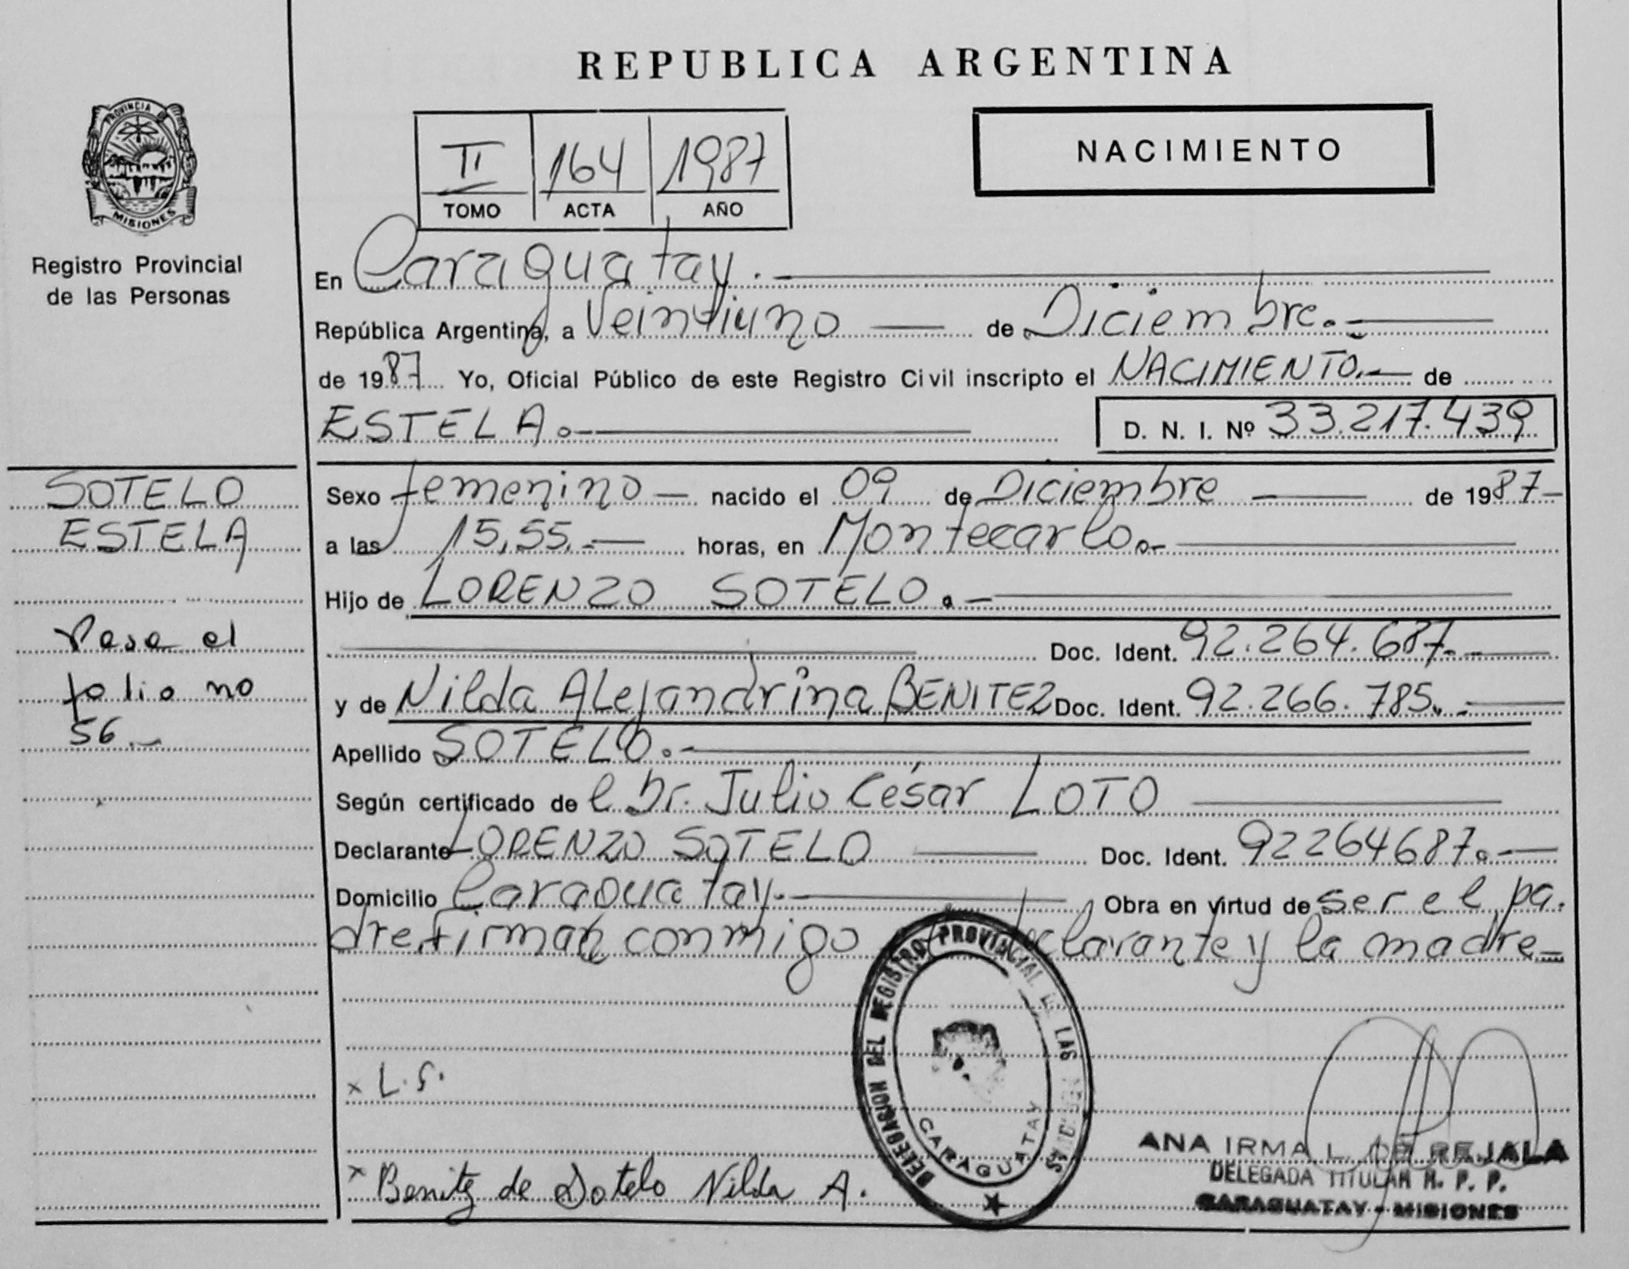 REPUBLICA ARGENTINA
PROVINCIA
MISIONES
Registro Provincial
de las Personas
II 164 1987
TOMO ACTA AÑO
NACIMIENTO
En Caraguatay.-
República Argentina, a Veintiuno de Diciembre.-
de 1987 Yo, Oficial Público de este Registro Civil inscripto el NACIMIENTO.- de
ESTELA.- D. N. I. Nº 33.217.439
SOTELO
ESTELA
Pasa al
folio no
56.-
Sexo femenino - nacido el 09 de Diciembre de 1987-
a las 15,55.- horas, en Montecarlo.-
Hijo de LORENZO SOTELO.-
Doc. Ident. 92.264.687.-
y de Nilda Alejandrina BENITEZ Doc. Ident. 92.266.785.-
Apellido SOTELO.-
Según certificado de el Dr. Julio César LOTO
Declarante LORENZO SOTELO Doc. Ident. 92264687.-
Domicilio Caraguatay.- Obra en virtud de ser el pa.
dre.Firman conmigo declarante y la madre.-
DELEGACION DEL REGISTRO PROVINCIAL DE LAS PERSONAS
CARAGUATAY
x L.S.
x Benitez de Sotelo Nilda A.
ANA IRMA L. DE REJALA
DELEGADA TITULAR R. P. P.
CARAGUATAY - MISIONES